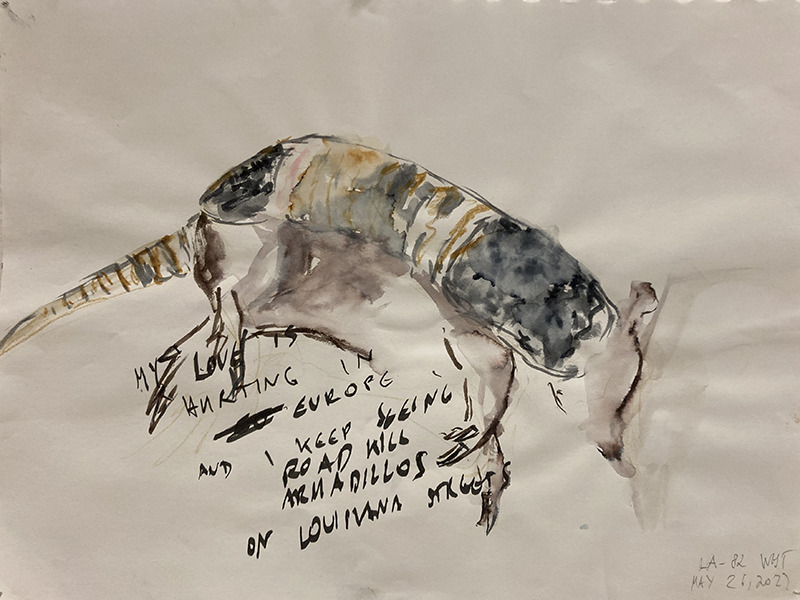 MY LOVE IS
HURTING IN
EUROPE
AND I KEEP SEEING
ROAD KILL
ARMADILLOS
ON LOUISIANA STREETS
LA-82 WST
MAY